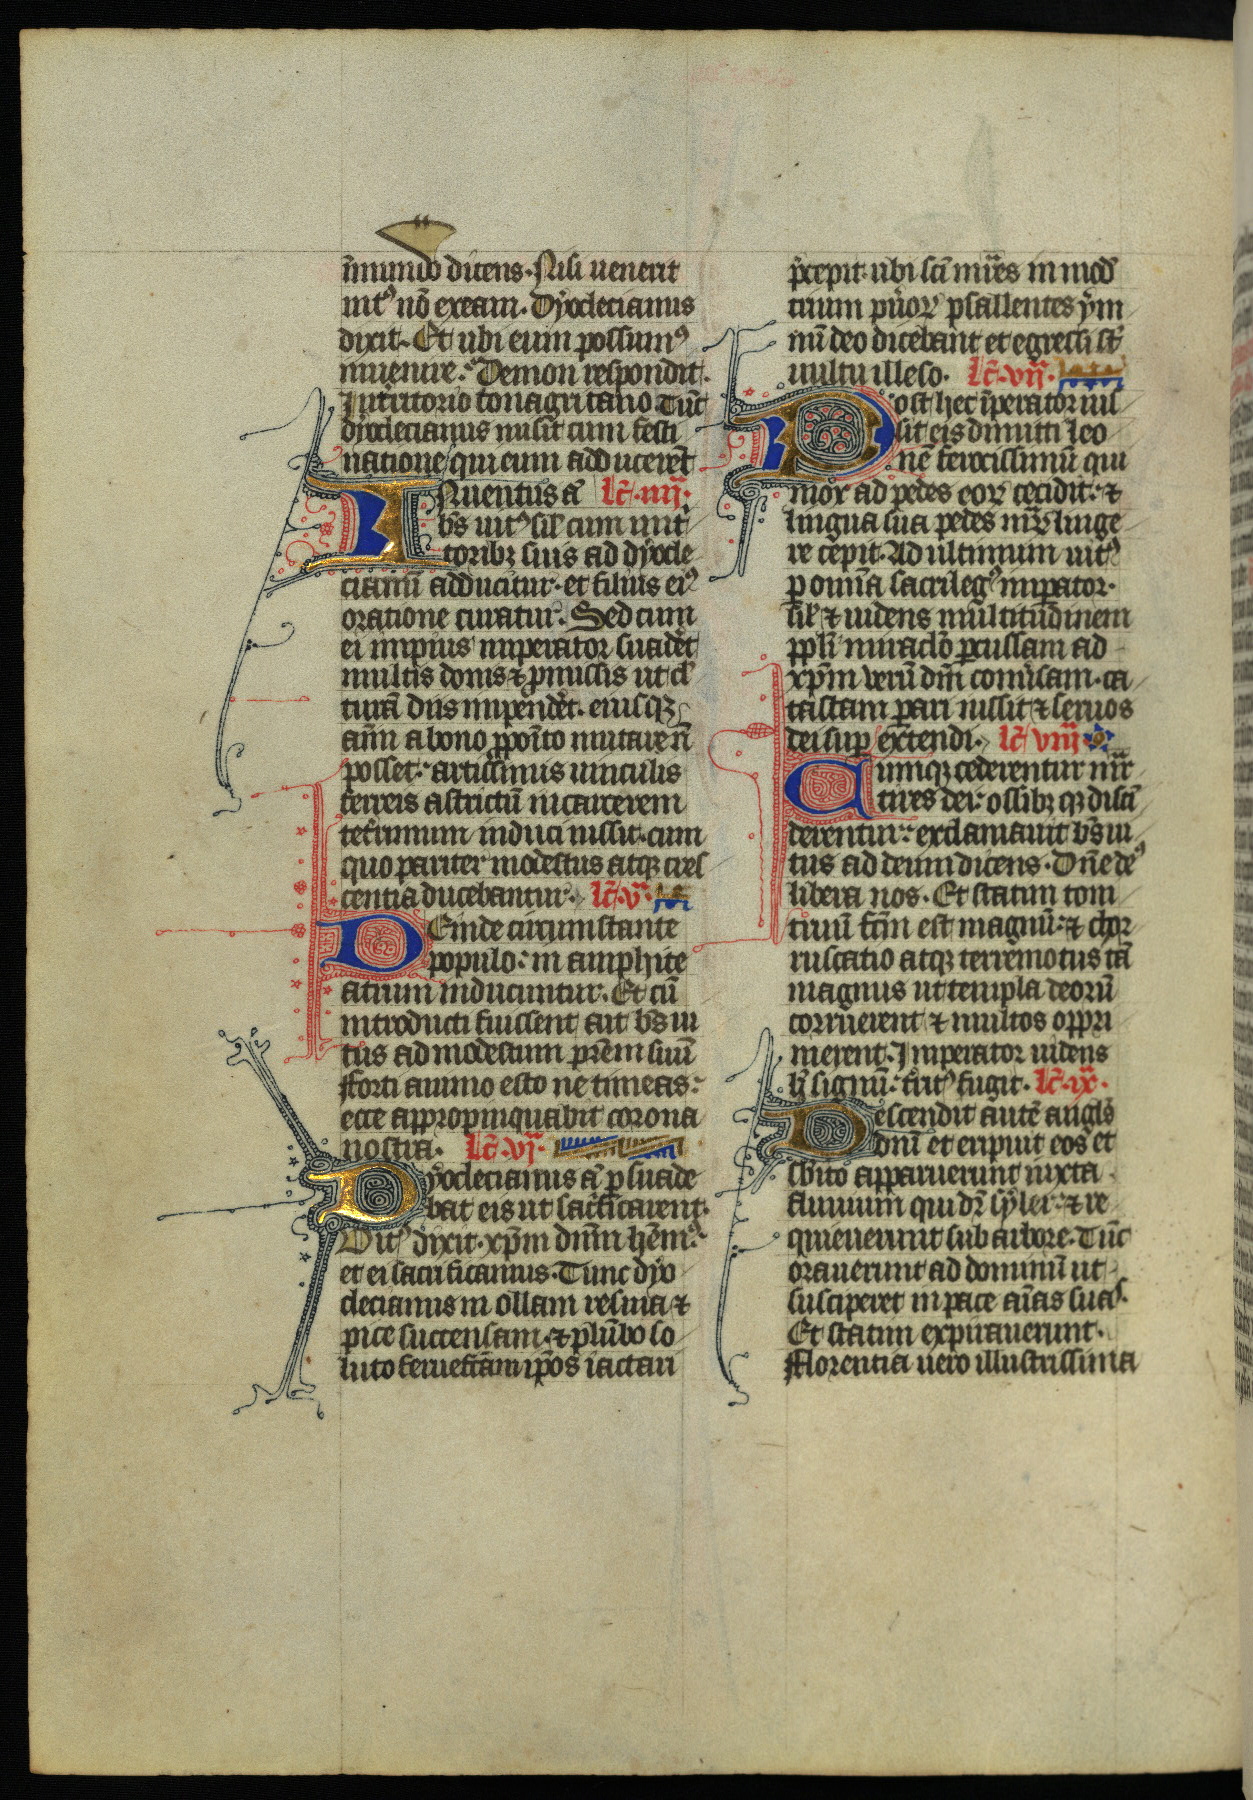 īmundo dicens. Nisi uenerit
uitꝰ nō exeam. Dyoclecianus
dixit. Et ubi eum possumꝰ
inuenire. Demon respondit.
In tritorio lonagritano Tūc
dyoclecianus misit cum festi
natione qui eum adducerēt
INuentus ā lc̄. iiij.
bs̄ uitꝰ sil̄ cum nut
toribꝫ suis ad dyocle
cianū adducitur. et filius eiꝰ
oratione curatur. Sed cum
ei impius imperator suadēt
multis donis ⁊ ꝓmissis ut cl
turā diis impendēt. eiusqꝫ
aīm a bono ꝓpoīto mutare n̄
posset. artissimis uinculis
ferreis astrictū in carcerem
teterrimum induci iussit. cum
quo pariter modestus atqꝫ cres
centia ducebantur. lc̄. v.
DEinde circumstante
populo. in amphite
atrum inducuntur. Et cū
introducti fuissent ait bs̄ ui
tus ad modestum pr̄em suū
Forti animo esto ne timeas.
ecce appropinquabit corona
nostra. lc̄. vj.
Dyoclecianus ā ꝑsuade
bat eis ut sacrificarent.
Uitꝰ dixit. xp̄m dnm̄ hēmꝰ
et ei sacrificamus. Tunc dyo
clecianus in ollam resina ⁊
pice succensam. ⁊ plūbo so
luto feruefc̄am ip̄os iactari
p̄cepit. ubi sc̄i mr̄es in mod
trium pūorꝝ psallentes ym
nū deo dicebant et egressi st̄
uultu illeso. lc̄. vij.
Post hec īperator ius
sit eis dimitti leo
nē ferocissimū qui
mox ad pedes eorꝝ cecidit. ⁊
lingua sua pedes mr̄ꝝ linge
re cepit. Ad ultimum uitꝰ
ꝑ omīa sacrilegꝰ inpator.
sil̄ ⁊ uidens multitudinem
ppl̄i miraclō ꝑculsam ad
xp̄m verū dm̄ conūsam. ca
tastam parari iussit ⁊ seruos
dei suꝑ extendi. lc̄ viij
Cumqꝫ cederentur mr̄
tires dei. ossibꝫ qꝫ disci
derentur. exclamauit bs̄ ui
tus ad deum dicens. Dn̄e deꝰ
libera nos. Et statim toni
truū fc̄m est magnū. ⁊ chor
ruscatio atqꝫ terremotus tā
magnus ut templa deorū
corruerent ⁊ multos oppri
merent. Imperator uidens
h̄ signū. territꝰ fugit. lc̄. ix.
Descendit autē anglꝰ
dn̄i et eripuit eos et
sbito apparuerunt iuxta
fluuium qui dr̄ syler. ⁊ re
quieuerunt sub arbore. Tūc
orauerunt ad dominū ut
susciperet in pace aīas suas.
Et statim expirauerunt.
Florentia uero illustrissima